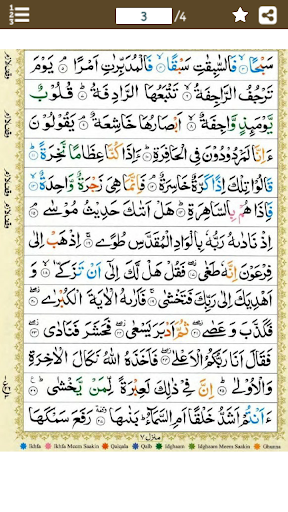 3 /4
سَبْحًا ۙ﴿۳﴾ فَالسّٰبِقٰتِ سَبْقًا ۙ﴿۴﴾ فَالْمُدَبِّرٰتِ اَمْرًا ۘ﴿۵﴾ يَوْمَ
تَرْجُفُ الرَّاجِفَةُ ۙ﴿۶﴾ تَتْبَعُهَا الرَّادِفَةُ ؕ﴿۷﴾ قُلُوْبٌ
يَّوْمَئِذٍ وَّاجِفَةٌ ۙ﴿۸﴾ اَبْصَارُهَا خَاشِعَةٌ ۘ﴿۹﴾ يَقُوْلُوْنَ
ءَاِنَّا لَمَرْدُوْدُوْنَ فِى الْحَافِرَةِ ؕ﴿۱۰﴾ ءَاِذَا كُنَّا عِظَامًا نَّخِرَةً ؕ﴿۱۱﴾
قَالُوْا تِلْكَ اِذًا كَرَّةٌ خَاسِرَةٌ ۘ﴿۱۲﴾ فَاِنَّمَا هِىَ زَجْرَةٌ وَّاحِدَةٌ ۙ﴿۱۳﴾
فَاِذَا هُمْ بِالسَّاهِرَةِ ؕ﴿۱۴﴾ هَلْ اَتٰٮكَ حَدِيْثُ مُوْسٰى ۘ﴿۱۵﴾
اِذْ نَادٰٮهُ رَبُّهٗ بِالْوَادِ الْمُقَدَّسِ طُوًى ۚ﴿۱۶﴾ اِذْهَبْ اِلٰى
فِرْعَوْنَ اِنَّهٗ طَغٰى ۖ﴿۱۷﴾ فَقُلْ هَلْ لَّكَ اِلٰٓى اَنْ تَزَكّٰى ۙ﴿۱۸﴾ وَ
اَهْدِيَكَ اِلٰى رَبِّكَ فَتَخْشٰى ۚ﴿۱۹﴾ فَاَرٰٮهُ الْاٰيَةَ الْكُبْرٰى ۖ﴿۲۰﴾
فَكَذَّبَ وَعَصٰى ۖ﴿۲۱﴾ ثُمَّ اَدْبَرَ يَسْعٰى ۖ﴿۲۲﴾ فَحَشَرَ فَنَادٰى ۖ﴿۲۳﴾
فَقَالَ اَنَا رَبُّكُمُ الْاَعْلٰى ۖ﴿۲۴﴾ فَاَخَذَهُ اللّٰهُ نَكَالَ الْاٰخِرَةِ
وَالْاُوْلٰى ؕ﴿۲۵﴾ اِنَّ فِىْ ذٰلِكَ لَعِبْرَةً لِّمَنْ يَّخْشٰى ؕ﴿۲۶﴾
ءَاَنْتُمْ اَشَدُّ خَلْقًا اَمِ السَّمَآءُ ؕ بَنٰٮهَا ۥ﴿۲۷﴾ رَفَعَ سَمْكَهَا
وقف لازم
وقف لازم
وقف لازم
وقف لازم
منزل ۷
Ikhfa Ikhfa Meem Saakin Qalqala Qalb Idghaam Idghaam Meem Saakin Ghunna